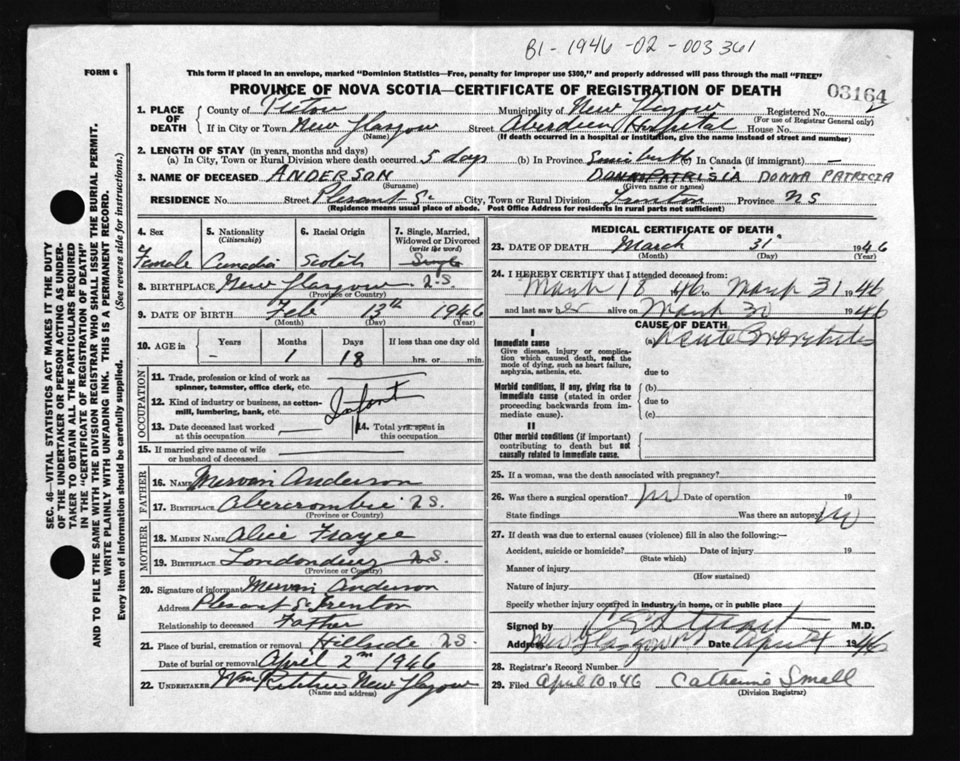 B1-1946-02-003361
FORM 6
This form if placed in an envelope, marked "Dominion Statistics—Free, penalty for improper use $300," and properly addressed will pass through the mail "FREE"
PROVINCE OF NOVA SCOTIA—CERTIFICATE OF REGISTRATION OF DEATH
03164
1. PLACE OF DEATH County of Pictou Municipality of New Glasgow Registered No.
(For use of Registrar General only)
If in City or Town New Glasgow Street Aberdeen Hospital House No.
(Name) (If death occurred in a hospital or institution, give the name instead of street and number)
2. LENGTH OF STAY (in years, months and days)
(a) In City, Town or Rural Division where death occurred 5 days (b) In Province Since birth (c) In Canada (if immigrant) —
3. NAME OF DECEASED ANDERSON DONNA PATRISIA DONNA PATRICIA
(Surname) (Given name or names)
RESIDENCE No. Street Plesant St City, Town or Rural Division Trenton Province NS
(Residence means usual place of abode. Post Office Address for residents in rural parts not sufficient)
4. Sex Female
5. Nationality (Citizenship) Canadian
6. Racial Origin Scotch
7. Single, Married, Widowed or Divorced (write the word) Single
8. BIRTHPLACE New Glasgow N.S.
(Province or Country)
9. DATE OF BIRTH Feb 13th 1946
(Month) (Day) (Year)
10. AGE in Years Months Days If less than one day old
- 1 18 hrs. or min.
OCCUPATION
11. Trade, profession or kind of work as spinner, teamster, office clerk, etc.
12. Kind of industry or business, as cotton-mill, lumbering, bank, etc. Infant
13. Date deceased last worked at this occupation
14. Total yrs. spent in this occupation
15. If married give name of wife or husband of deceased
FATHER
16. NAME Mervin Anderson
17. BIRTHPLACE Abercrombie N.S.
(Province or Country)
MOTHER
18. MAIDEN NAME Alice
19. BIRTHPLACE Londonderry N.S.
(Province or Country)
20. Signature of informant Mervin Anderson
Address Plesant St Trenton
Relationship to deceased Father
21. Place of burial, cremation or removal Hillside N.S.
Date of burial or removal April 2nd 1946
22. UNDERTAKER Wm Ritchie New Glasgow
(Name and address)
MEDICAL CERTIFICATE OF DEATH
23. DATE OF DEATH March 31 1946
(Month) (Day) (Year)
24. I HEREBY CERTIFY that I attended deceased from:
March 18 1946 to March 31 1946
and last saw her alive on March 30 1946
CAUSE OF DEATH
I
Immediate cause (a) Acute Bronchitis
Give disease, injury or complication which caused death, not the mode of dying, such as heart failure, asphyxia, asthenia, etc.
due to
Morbid conditions, if any, giving rise to immediate cause (stated in order proceeding backwards from immediate cause).
(b)
due to
(c)
II
Other morbid conditions (if important) contributing to death but not causally related to immediate cause.
25. If a woman, was the death associated with pregnancy?
26. Was there a surgical operation? no Date of operation 19
State findings Was there an autopsy no
27. If death was due to external causes (violence) fill in also the following:—
Accident, suicide or homicide? Date of injury 19
(State which)
Manner of injury
(How sustained)
Nature of injury
Specify whether injury occurred in industry, in home, or in public place
Signed by Stuart M.D.
Address New Glasgow Date April 1946
28. Registrar's Record Number
29. Filed April 10 1946 Catherine Small
(Division Registrar)
SEC. 46—VITAL STATISTICS ACT MAKES IT THE DUTY
OF THE UNDERTAKER OR PERSON ACTING AS UNDER-
TAKER TO OBTAIN ALL THE PARTICULARS REQUIRED
IN THE "CERTIFICATE OF REGISTRATION OF DEATH"
AND TO FILE THE SAME WITH THE DIVISION REGISTRAR WHO SHALL ISSUE THE BURIAL PERMIT.
WRITE PLAINLY WITH UNFADING INK. THIS IS A PERMANENT RECORD.
Every item of information should be carefully supplied. (See reverse side for instructions.)